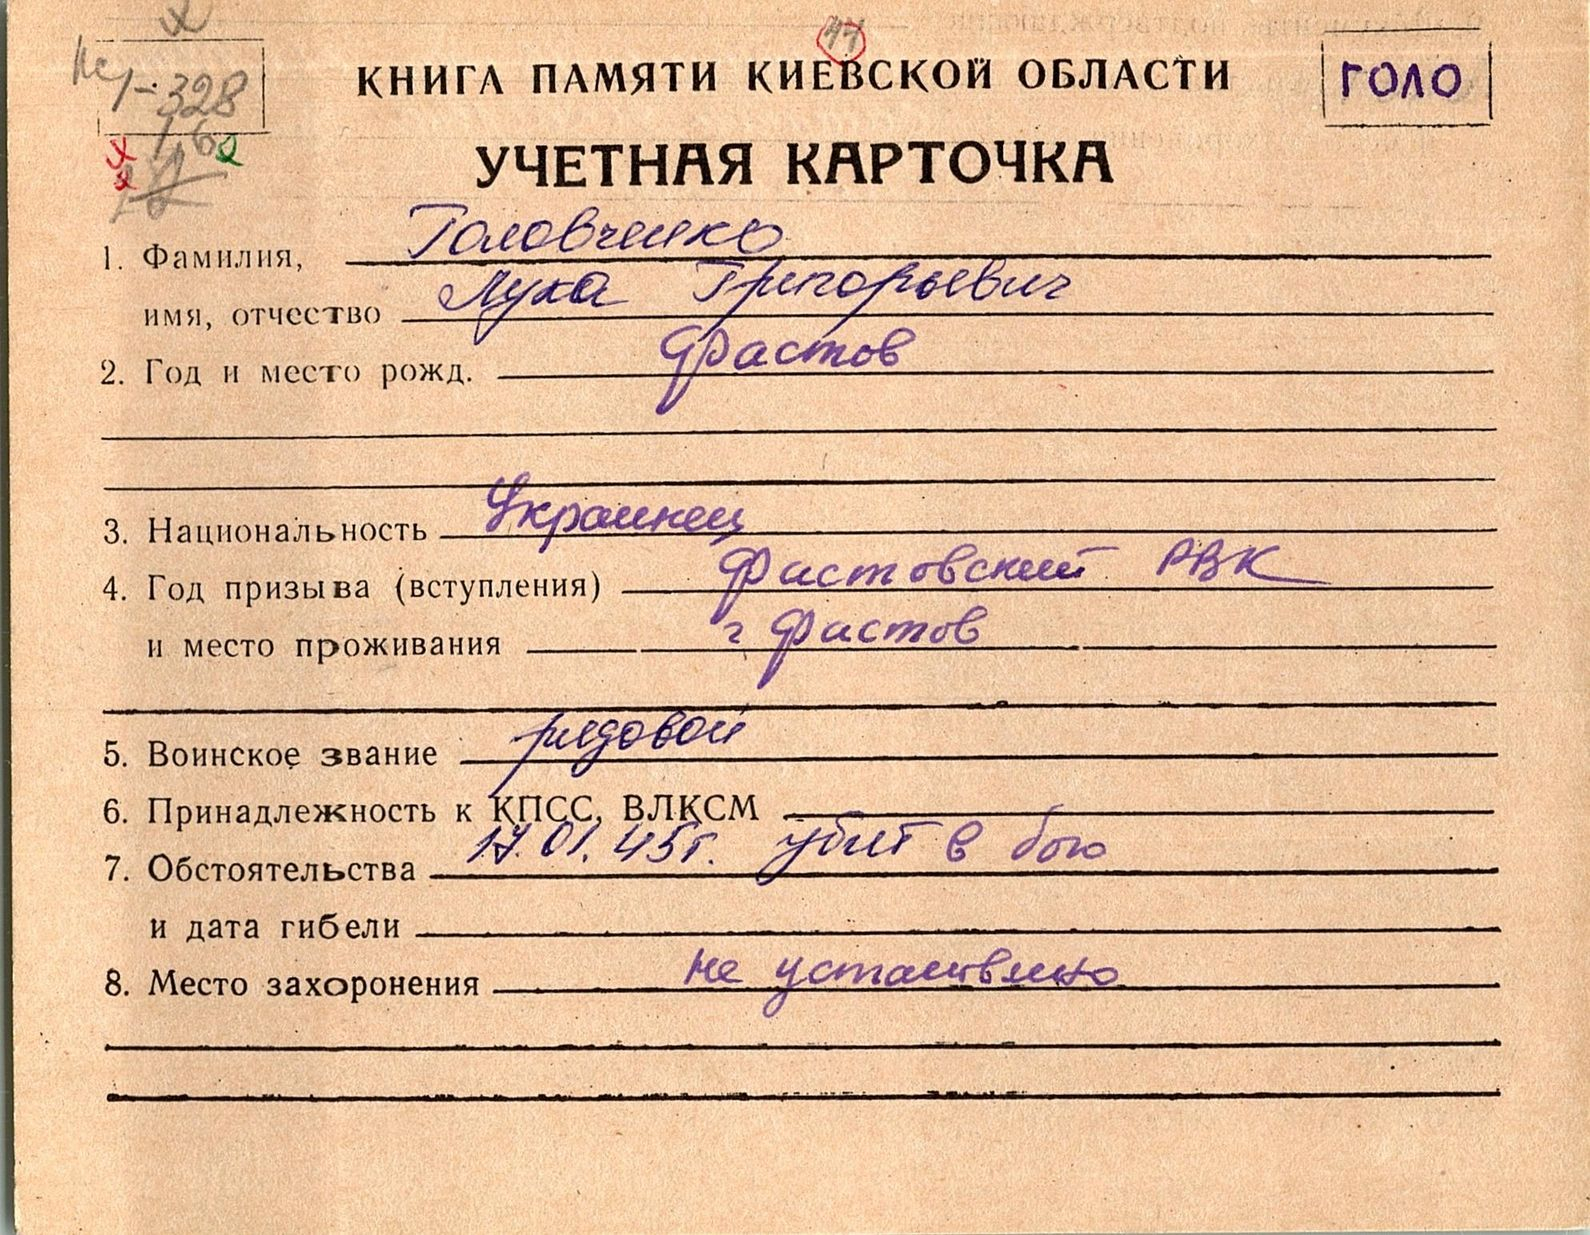 44
КНИГА ПАМЯТИ КИЕВСКОЙ ОБЛАСТИ
ГОЛО
328
УЧЕТНАЯ КАРТОЧКА
1. Фамилия, Головченко
имя, отчество Лука Григорьевич
2. Год и место рожд. Фастов
3. Национальность Украинец
4. Год призыва (вступления) Фастовский РВК
и место проживания г Фастов
5. Воинское звание рядовой
6. Принадлежность к КПСС, ВЛКСМ
7. Обстоятельства 17.01.45г. убит в бою
и дата гибели
8. Место захоронения не установлено